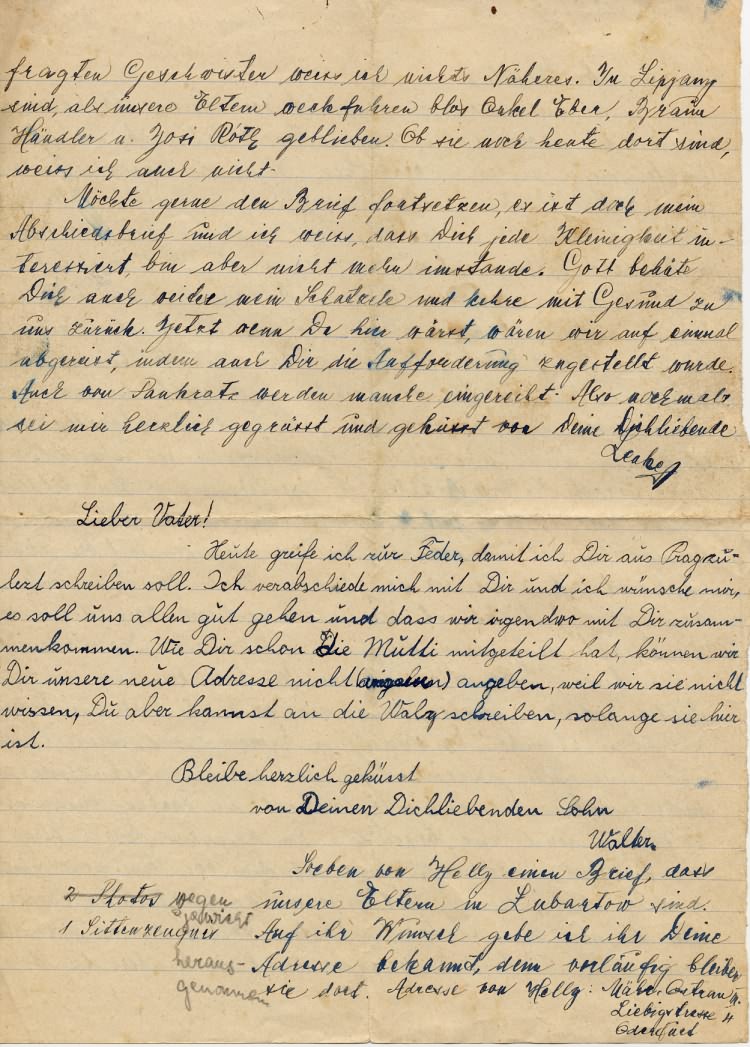 fragten Geschwister weiss ich nichts Näheres. In Lipjany
sind, als unsere Eltern weckfuhren blos Onkel Eder, Braun
Händler u. Zosi Róth geblieben. Ob sie noch heute dort sind,
weiss ich auch nicht.
Möchte gerne den Brief fortsetzen, es ist doch mein
Abschiedsbrief und ich weiss, dass Dich jede Kleinigkeit in-
teressiert, bin aber nicht mehr imstande. Gott behüte
Dich auch weiter mein Schatzele und kehre mit Gesund zu
uns zurück. Jetzt wenn Du hier wärst, wären wir auf einmal
abgereist, indem auch Dir die Aufforderung zugestellt wurde.
Auch von werden manche eingereiht. Also nochmals
sei mir herzlich gegrüsst und geküsst von Deine Dichliebende
Lieber Vater!
Heute greife ich zur Feder, damit ich Dir aus Prag zu-
lezt schreiben soll. Ich verabschiede mich mit Dir und ich wünsche mir,
es soll uns allen gut gehen und dass wir irgendwo mit Dir zusam-
menkommen. Wie Dir schon die Mutti mitgeteilt hat, können wir
Dir unsere neue Adresse nicht angeben, weil wir sie nicht
wissen, Du aber kannst an die Waly schreiben, solange sie hier
ist.
Bleibe herzlich geküsst
von Deinen Dichliebenden Sohn
Walter.
Soeben von Helly einen Brief, dass
unsere Eltern in Lubartow sind.
Auf ihr Wunsch gebe ich ihr Deine
Adresse bekannt, denn vorläufig bleiben
sie dort. Adresse von Helly: Mähr. Ostrau
Liebigstrasse
Oderfurt
2 Photos wegen
1 Sittenzeugnis
heraus-
genommen